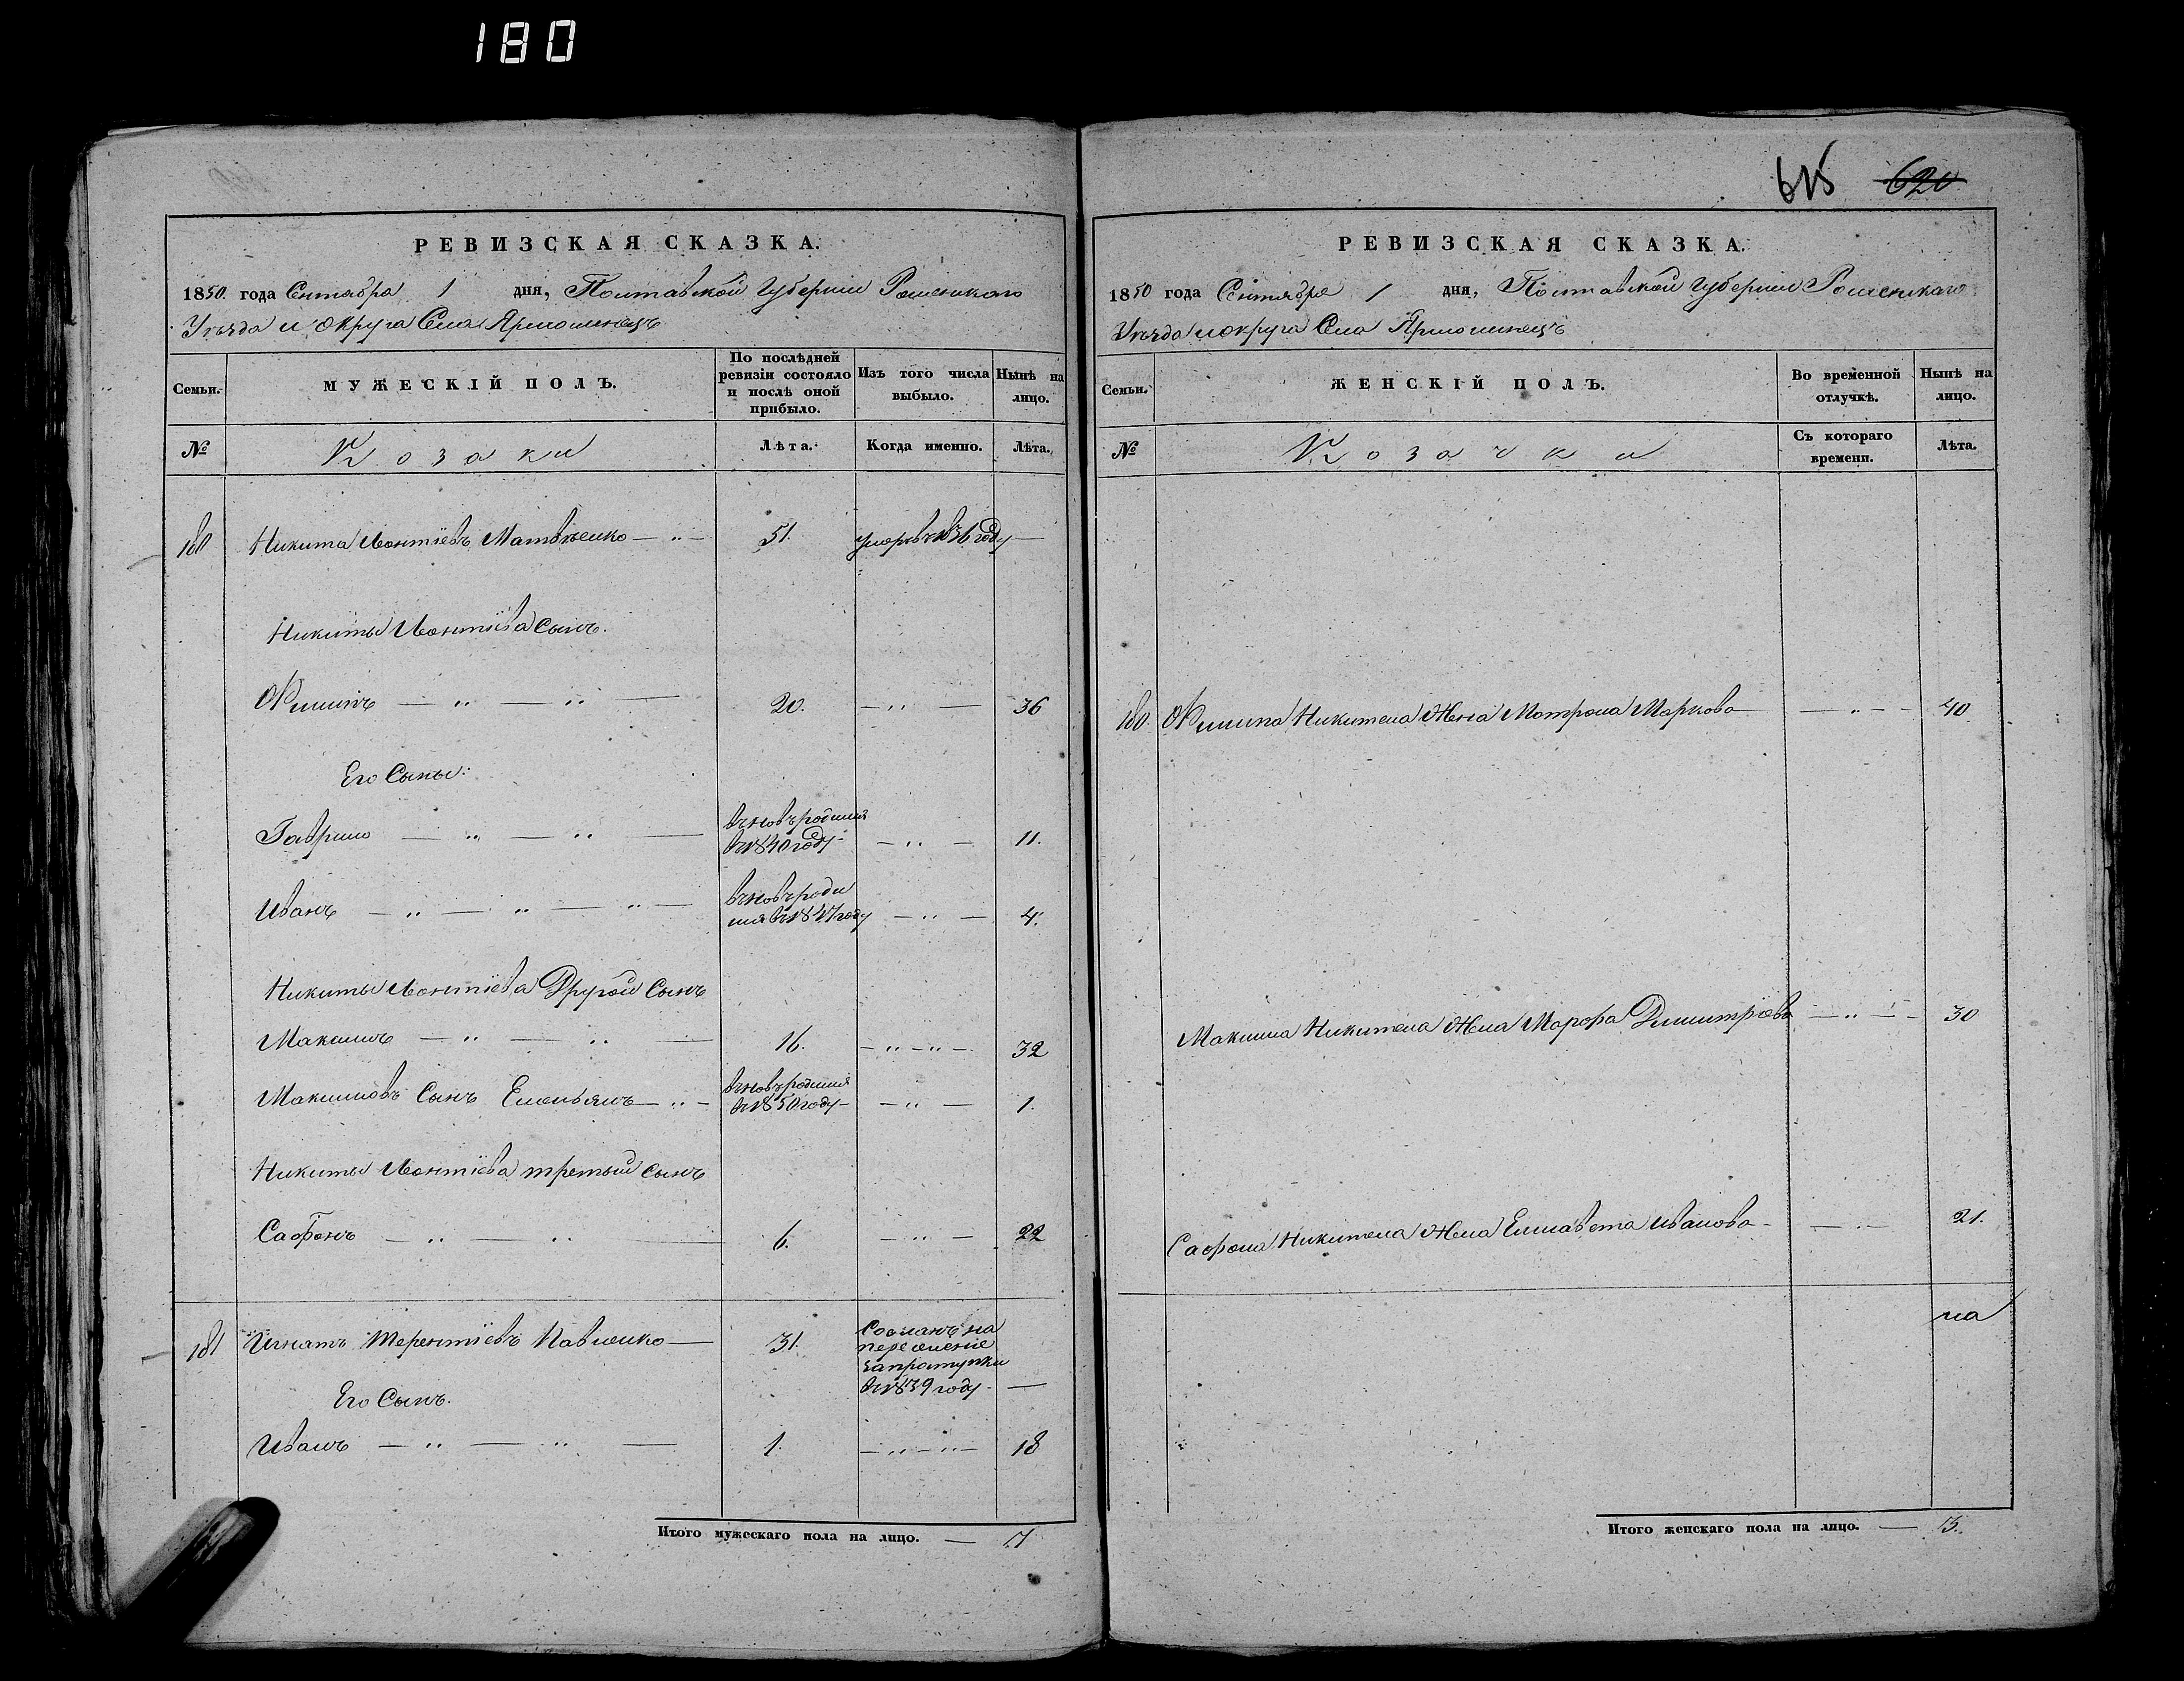 180
615 620
РЕВИЗСКАЯ СКАЗКА.
1850. года Сентября 1 дня, Полтавской Губернии Роменского
Уѣзда и округа Села Ярмошинецъ
Семьи. МУЖЕСКІЙ ПОЛЪ. По послѣдней ревизіи состояло и послѣ оной прибыло. Изъ того числа выбыло. Нынѣ на лицо.
№ Козаки Лѣта. Когда именно. Лѣта.
180 Никита Леонтіевъ Матвѣенко 51. умеръ въ 1836 году
Никиты Леонтіева Сынъ.
Филипъ 20. 36
Его Сыны:
Гаврило вновь родился въ 1840 году 11.
Иванъ вновь родился въ 1847 году 4.
Никиты Леонтіева Другой Сынъ
Максимъ 16. 32
Максимовъ Сынъ Емельянъ вновь родился въ 1850 году 1.
Никиты Леонтіева третый сынъ
Сафонъ 6. 22
181 Игнатъ Терентіевъ Павленко 31. Сосланъ на
въ 1839 году
Его Сынъ.
Иванъ 1. 18
Итого мужескаго пола на лицо. 7
РЕВИЗСКАЯ СКАЗКА.
1850 года Сентября 1 дня, Полтавской Губернии Роменскаго
Уѣзда и округа Села Ярмошинецъ
Семьи. ЖЕНСКІЙ ПОЛЪ. Во временной отлучкѣ. Нынѣ на лицо.
№ Козачки Съ котораго времени. Лѣта.
180. Филипа Никитена Жена Мотрона Маркова 40
Максима Никитена Жена Марфа Димитріева 30
Сафона Никитена Жена Елисавета Иванова 21.
Итого женскаго пола на лицо. 3.